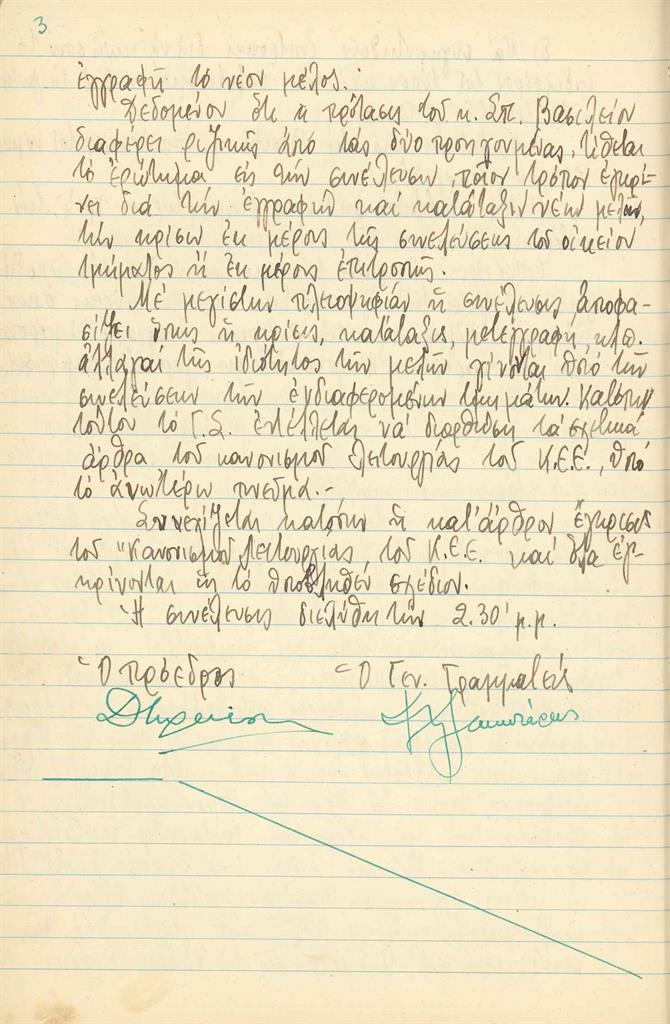 3
ἐγγραφῇ τὸ νέον μέλος.
Δεδομένου ὅτι ἡ πρότασις τοῦ κ. Σπ. Βασιλείου
διαφέρει ριζικῶς ἀπὸ τὰς δύο προηγουμένας, τίθεται
τὸ ἐρώτημα εἰς τὴν συνέλευσιν, ποῖον τρόπον ἐγκρί-
νει διὰ τὴν ἐγγραφὴν καὶ κατάταξιν νέων μελῶν,
τὴν κρίσιν ἐκ μέρους τῆς συνελεύσεως τοῦ οἰκείου
τμήματος ἢ ἐκ μέρους ἐπιτροπῆς.
Μὲ μεγίστην πλειοψηφίαν ἡ συνέλευσις ἀποφα-
σίζει ὅπως ἡ κρίσις, κατάταξις, μετεγγραφὴ, κλπ.
ἀλλαγαὶ τῆς ἰδιότητος τῶν μελῶν γίνονται ὑπὸ τῶν
συνελεύσεων τῶν ἐνδιαφερομένων τμημάτων. Κατόπιν
τούτου τὸ Γ.Σ. ἐντέλλεται νὰ διορθώσῃ τὰ σχετικὰ
ἄρθρα τοῦ κανονισμοῦ λειτουργίας τοῦ Κ.Ε.Ε., ὑπὸ
τὸ ἀνωτέρω πνεῦμα.-
Συνεχίζεται κατόπιν ἡ κατ' ἄρθρον ἔγκρισις
τοῦ "Κανονισμοῦ Λειτουργίας τοῦ Κ.Ε.Ε. καὶ ὅλα ἐγ-
κρίνονται ὡς τὸ ὑποβληθὲν σχέδιον.
Ἡ συνέλευσις διελύθη τὴν 2.30' μ.μ.
Ὁ Πρόεδρος Ὁ Γεν. Γραμματεύς